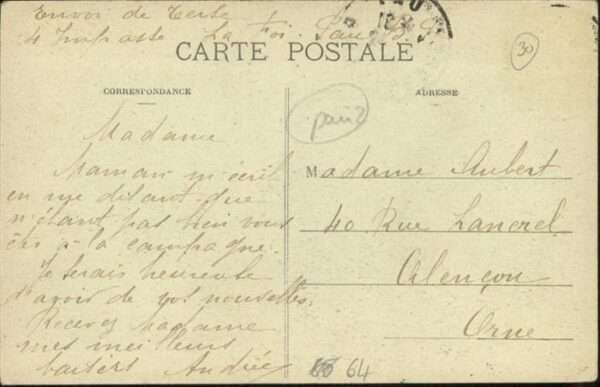 Envoi de
4 Impasse La Foi. Pau
CARTE POSTALE
30
CORRESPONDANCE
ADRESSE
Madame
Maman m'écrit
en me disant que
n'étant pas bien vous
êtes à la campagne.
Je serais heureuse
d'avoir de vos nouvelles.
Recevez Madame
mes meilleurs
baisers Andrée
Madame Aubert
40 Rue Lancrel
Alençon
Orne
64